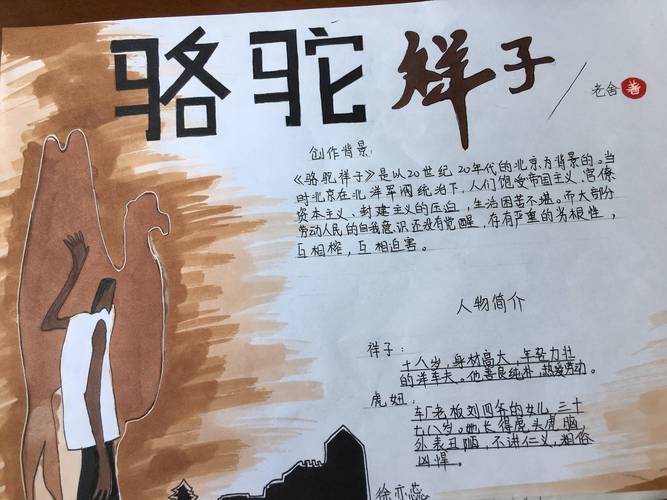 骆驼祥子
老舍 著
创作背景:
《骆驼祥子》是以20世纪20年代的北京为背景的。当
时北京在北洋军阀统治下,人们饱受帝国主义、官僚
资本主义、封建主义的压迫,生活困苦不堪。而大部分
劳动人民的自我意识还没有觉醒,存有严重的劣根性,
互相榨,互相迫害。
人物简介
祥子:
十八岁,身材高大,年轻力壮
的洋车夫。他善良纯朴,热爱劳动。
虎妞:
车厂老板刘四爷的女儿,三十
七八岁。她长得虎头虎脑,
外表丑陋,不讲仁义,粗俗
凶悍。
徐亦蕊